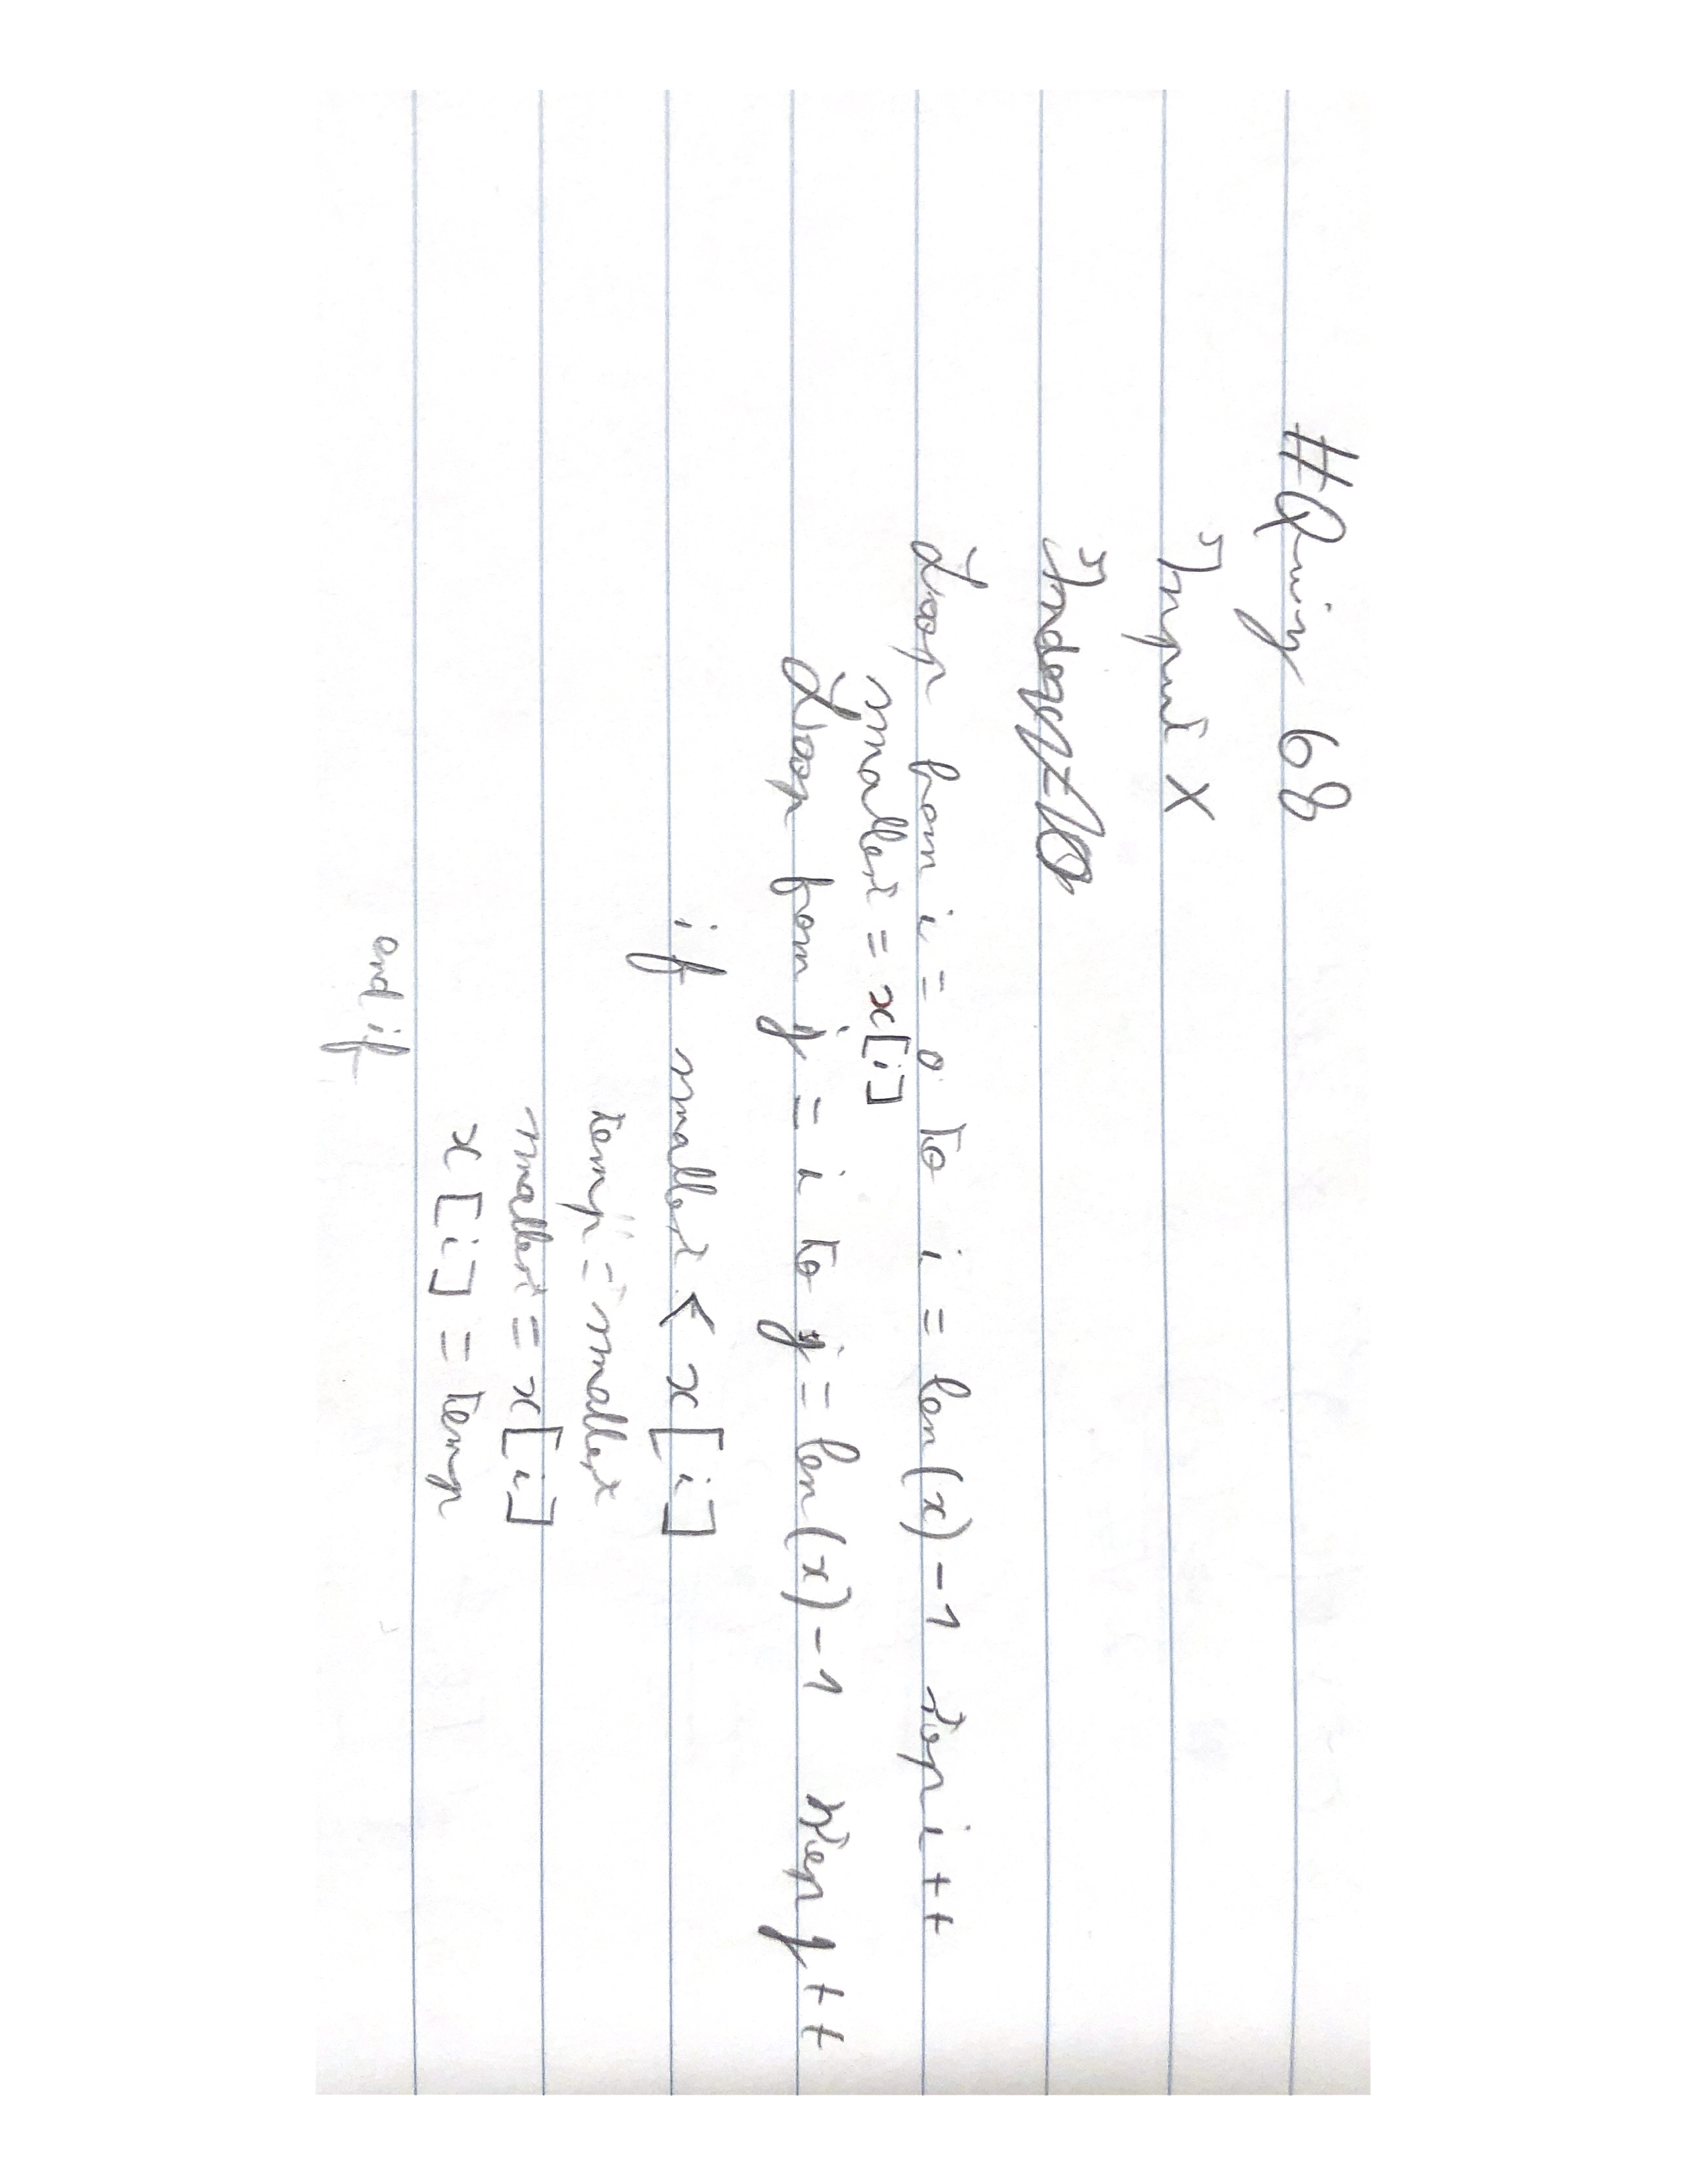 #Quiz 68
Input X
Loop from i = 0 to i = len(x) - 1 step i++
smallest = x[i]
Loop from j = i to j = len(x) - 1 step j++
if smallest < x[i]
temp = smallest
smallest = x[i]
x[i] = temp
end if